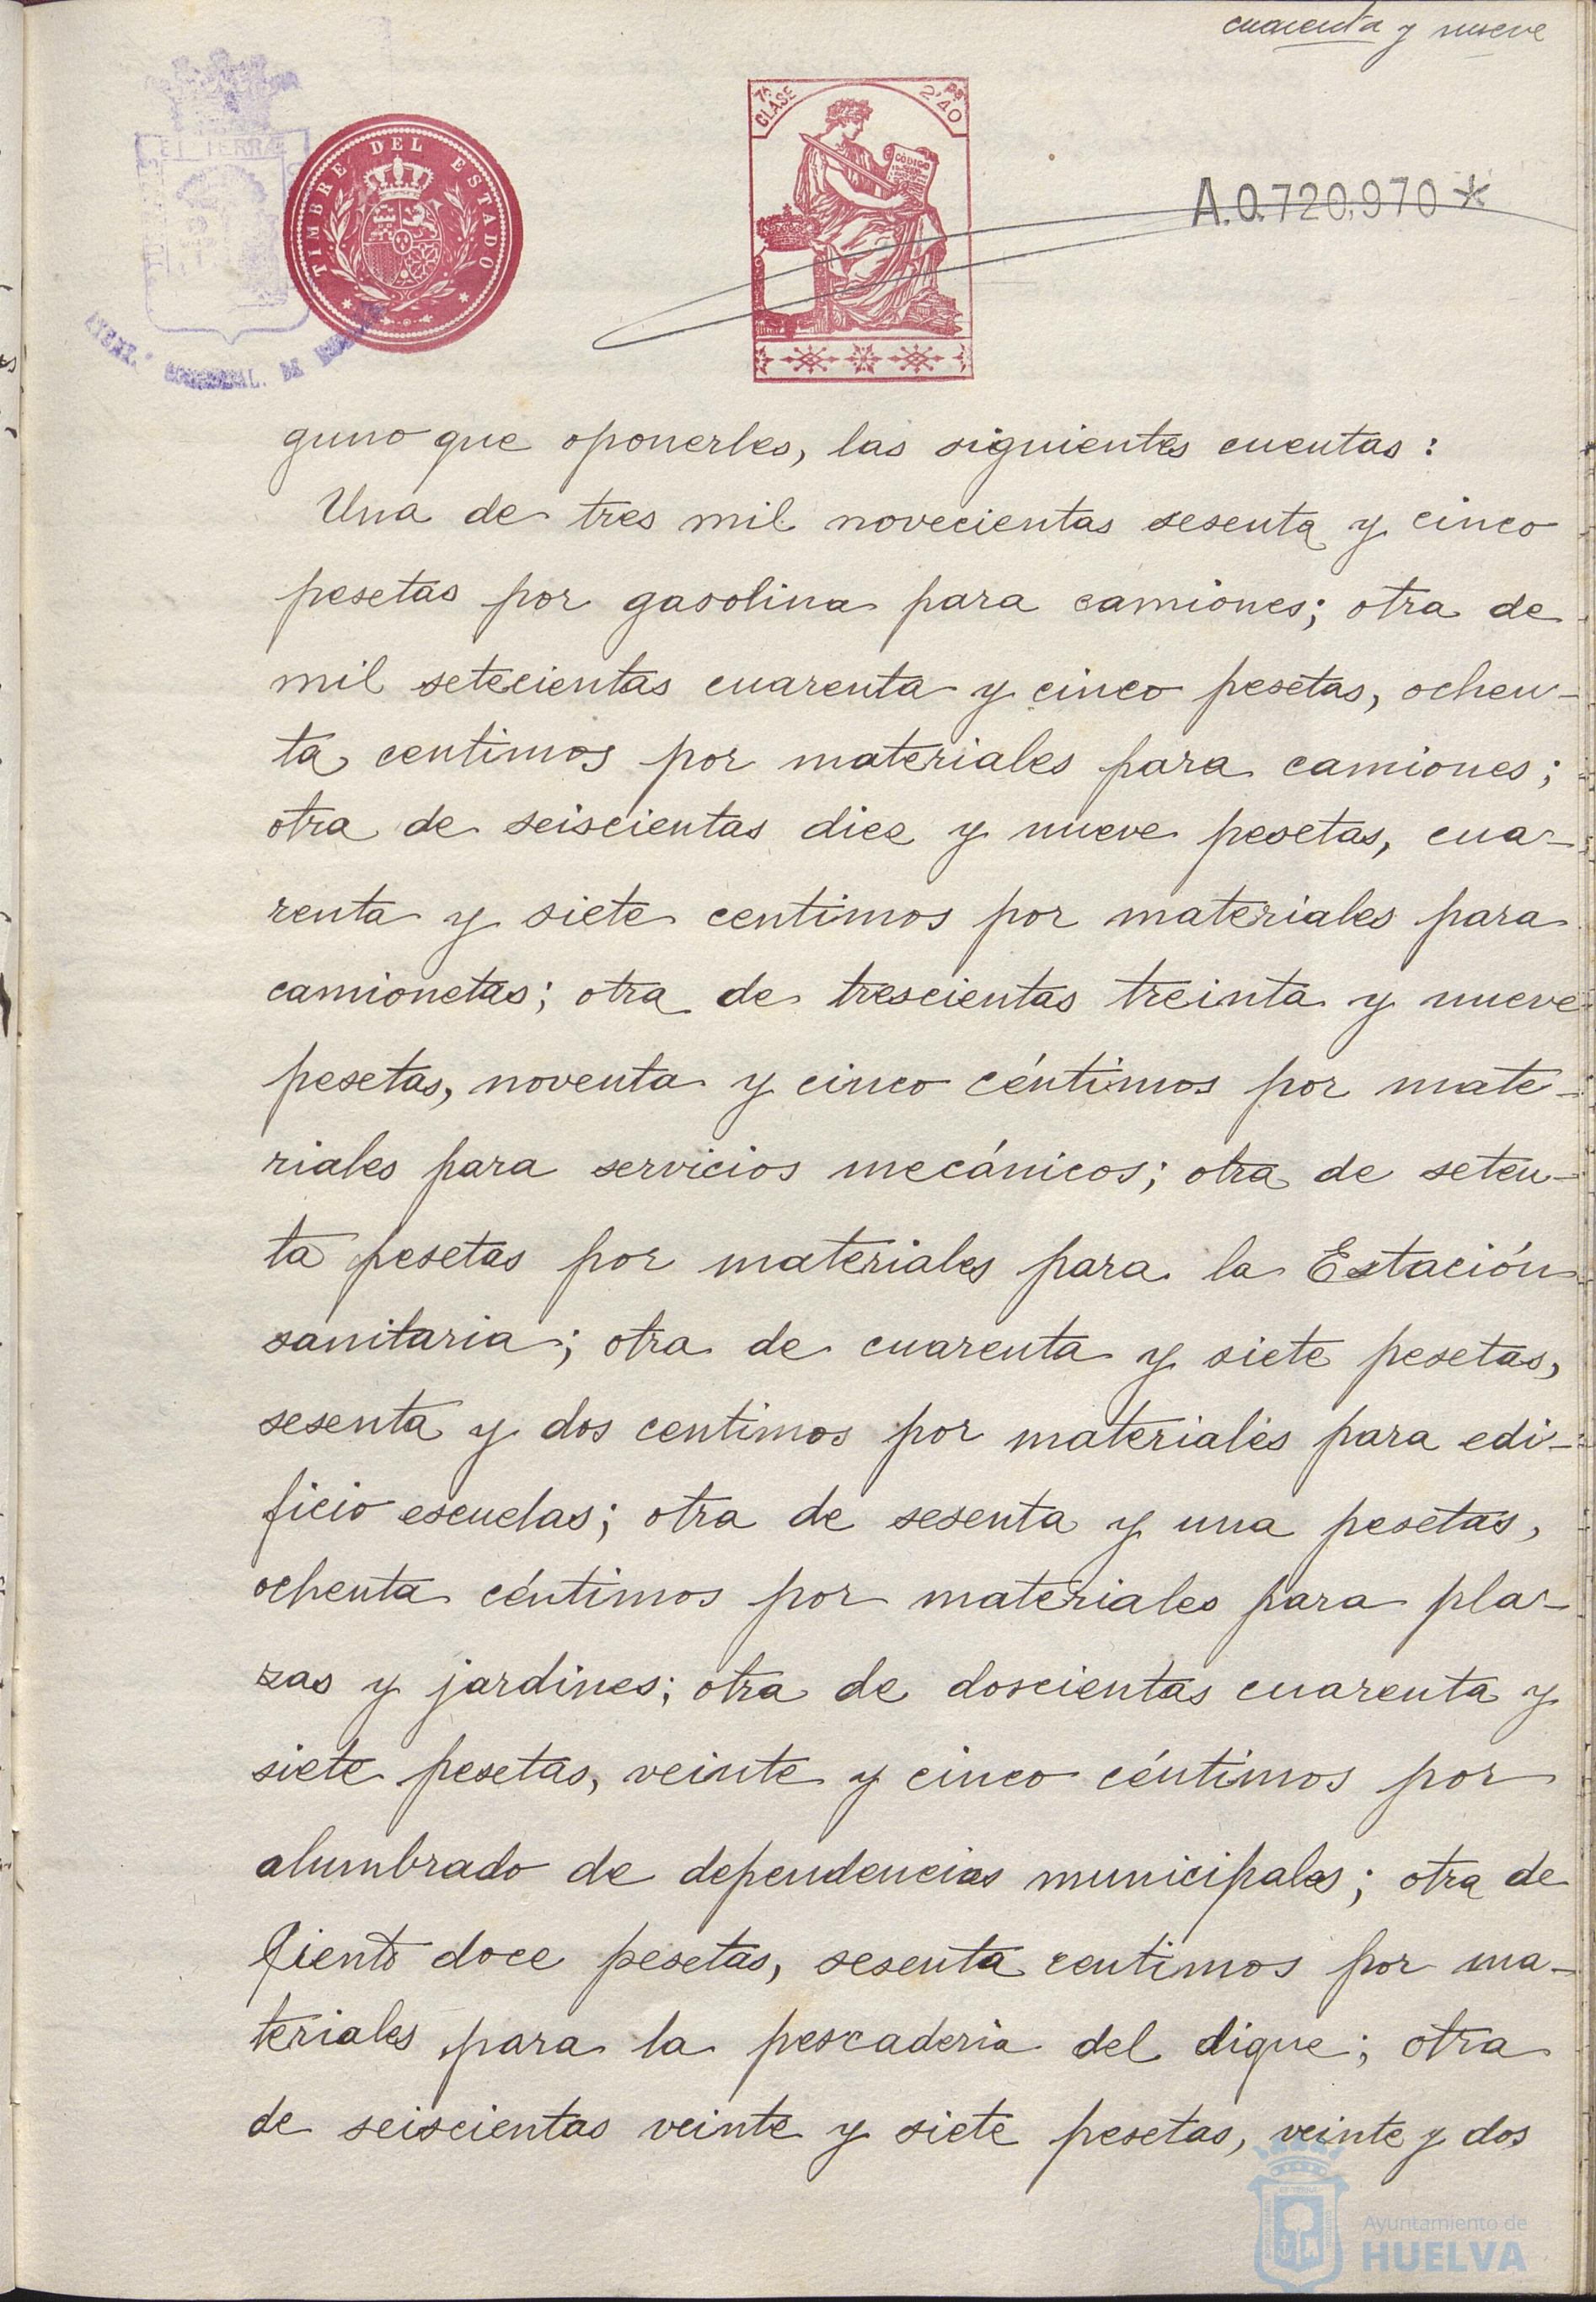 cuarenta y nueve
TIMBRE DEL ESTADO
7ª CLASE
2'40
CÓDIGO
A.0.720.970*
guno que oponerles, las siguientes cuentas:
Una de tres mil novecientas sesenta y cinco
pesetas por gasolina para camiones; otra de
mil setecientas cuarenta y cinco pesetas, ochen-
ta centimos por materiales para camiones;
otra de seiscientas diez y nueve pesetas, cua-
renta y siete centimos por materiales para
camionetas; otra de trescientas treinta y nueve
pesetas, noventa y cinco céntimos por mate-
riales para servicios mecánicos; otra de seten-
ta pesetas por materiales para la Estación
sanitaria; otra de cuarenta y siete pesetas,
sesenta y dos centimos por materiales para edi-
ficio escuelas; otra de sesenta y una pesetas,
ochenta céntimos por materiales para pla-
zas y jardines; otra de doscientas cuarenta y
siete pesetas, veinte y cinco céntimos por
alumbrado de dependencias municipales; otra de
ciento doce pesetas, sesenta centimos por ma-
teriales para la pescaderia del dique; otra
de seiscientas veinte y siete pesetas, veinte y dos
Ayuntamiento de
HUELVA